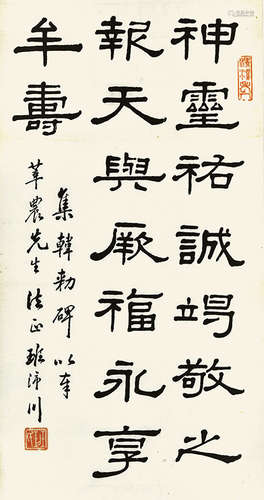 神靈祐誠竭敬之
報天與厥福永享
牟壽
集韓勑碑以奉
農先生法正 川